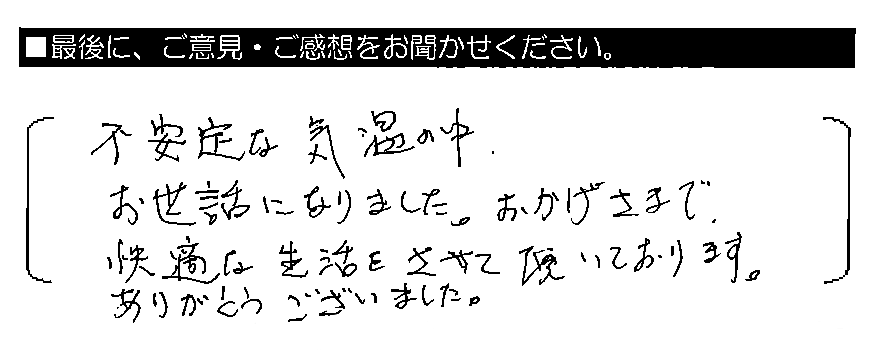 ■最後に、ご意見・ご感想をお聞かせください。
不安定な気温の中、
お世話になりました。おかげさまで、
快適な生活をさせて頂いております。
ありがとうございました。